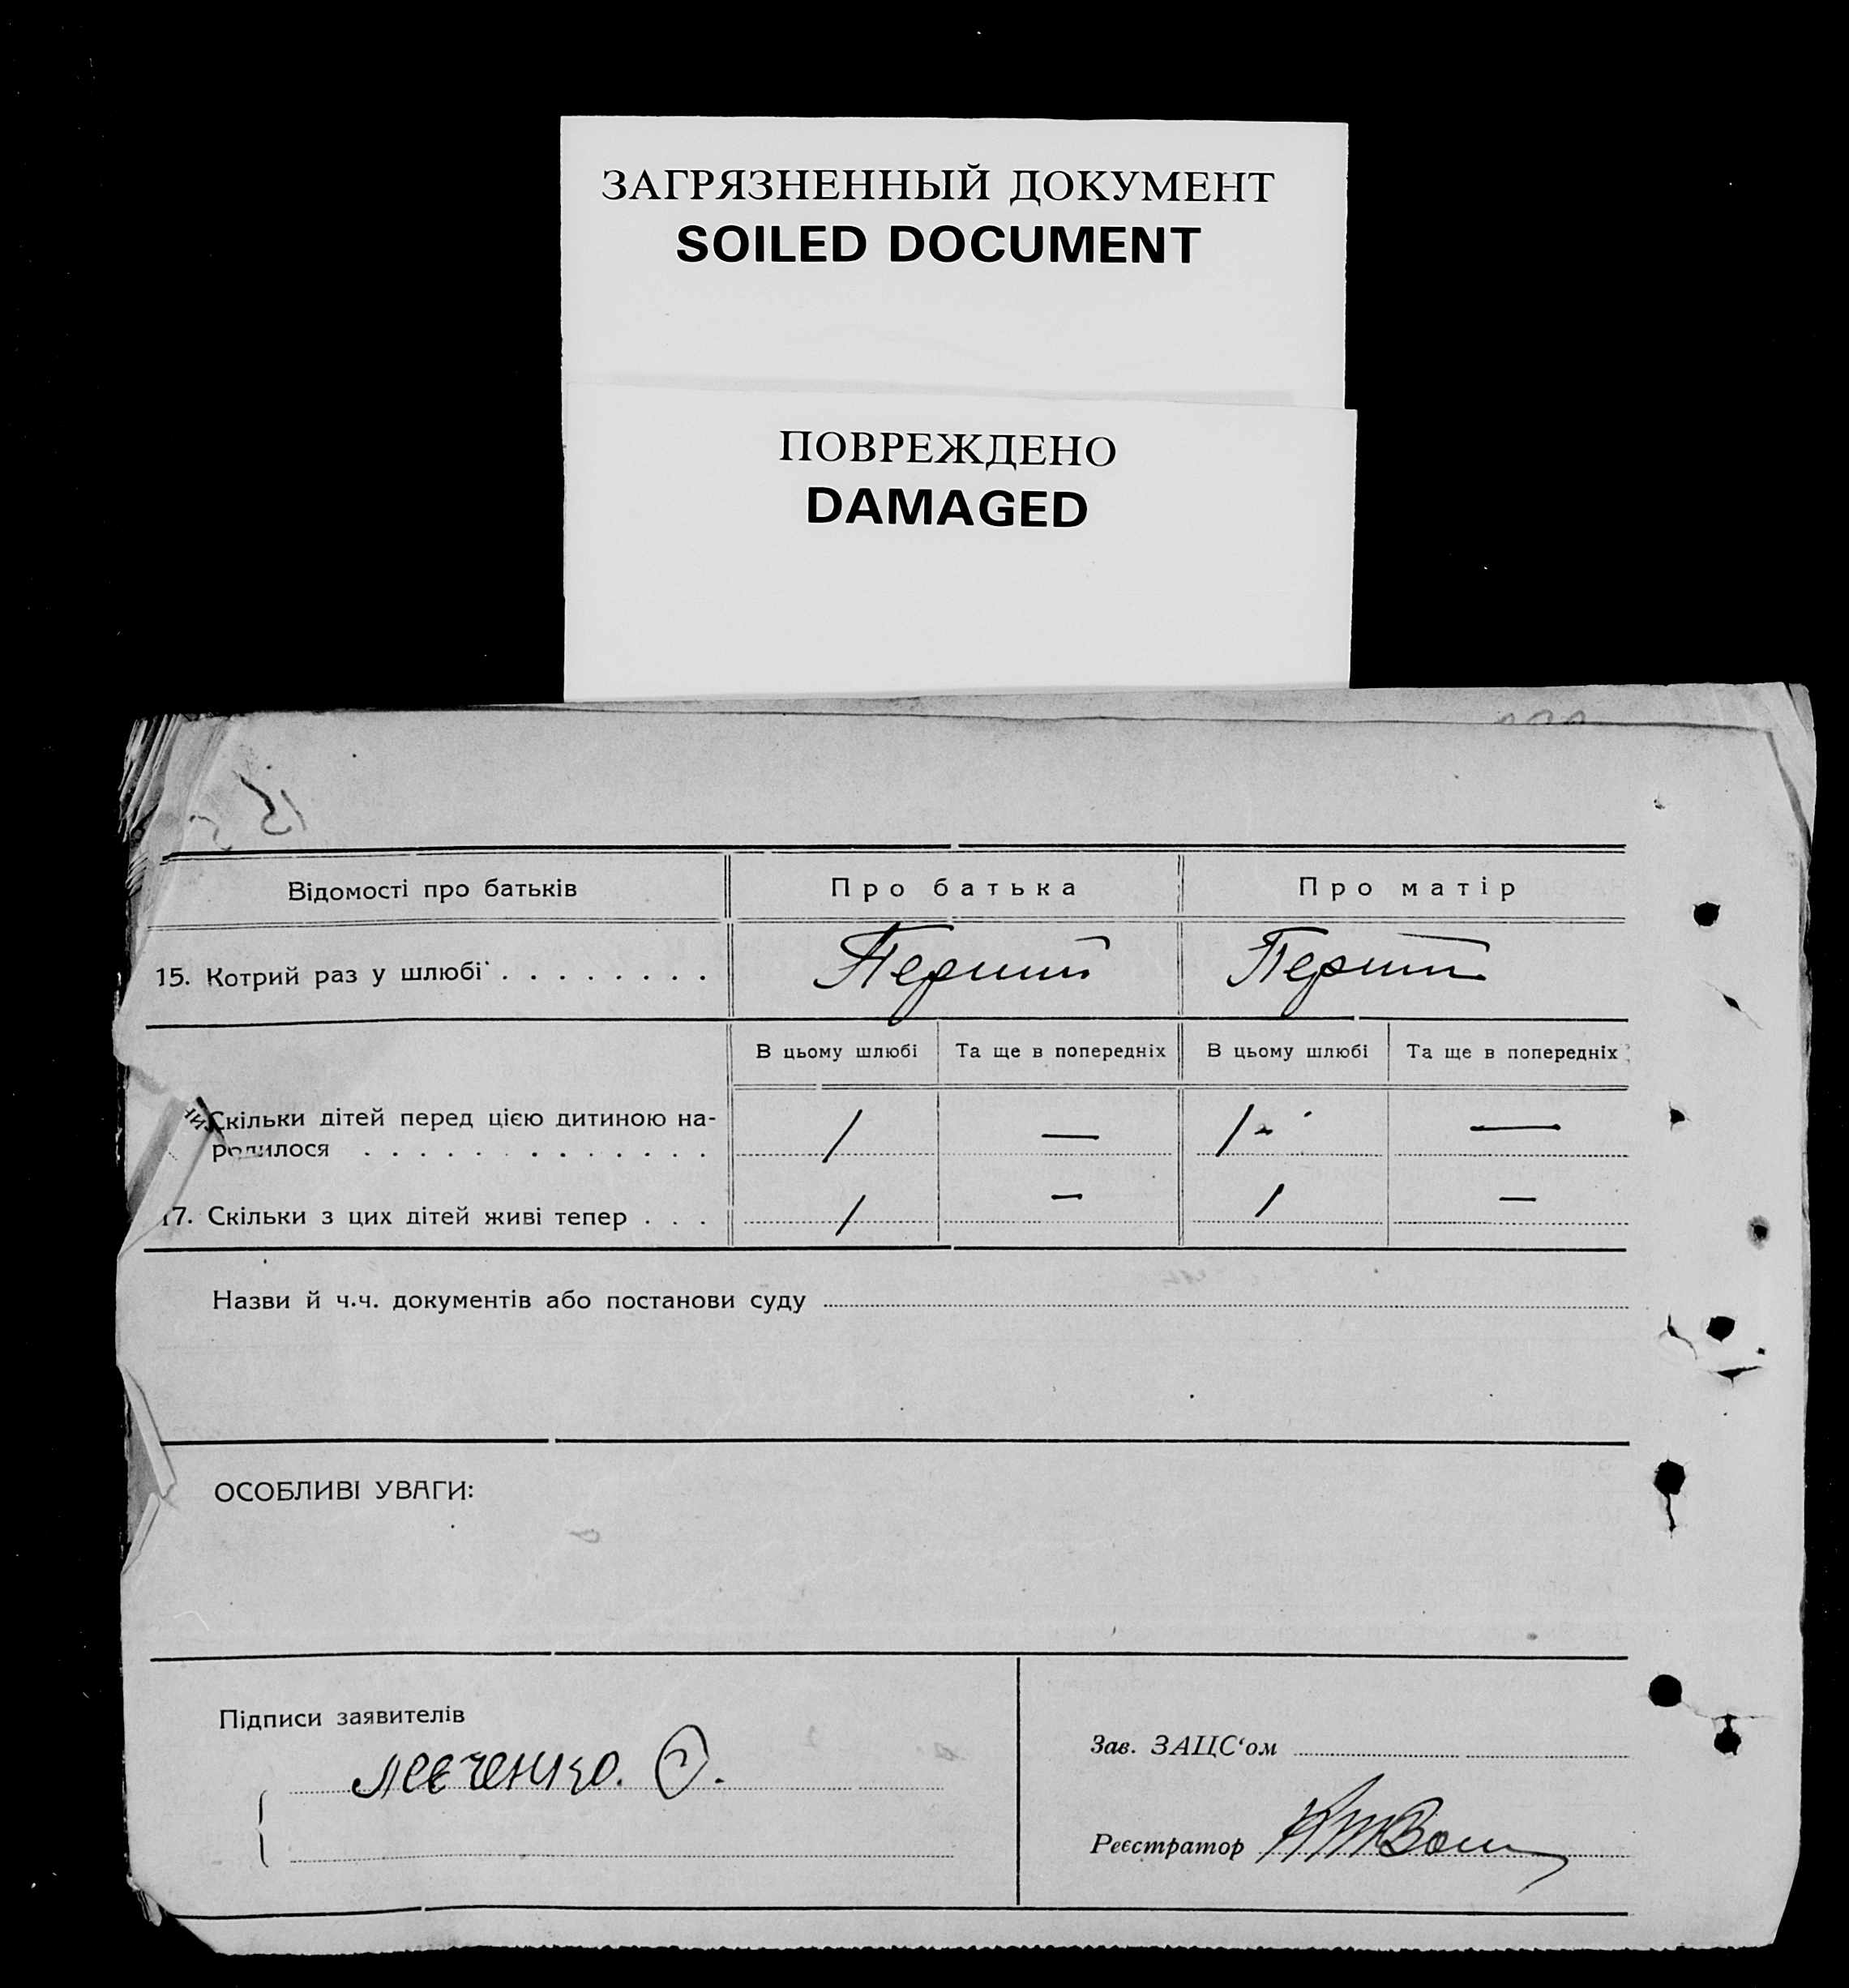 ЗАГРЯЗНЕННЫЙ ДОКУМЕНТ
SOILED DOCUMENT
ПОВРЕЖДЕНО
DAMAGED
Відомості про батьків Про батька Про матір
15. Котрий раз у шлюбі . . . . . . . . Перший Перший
В цьому шлюбі Та ще в попередніх В цьому шлюбі Та ще в попередніх
Скільки дітей перед цією дитиною на-
родилося . . . . . . . . . . . . . 1 — 1 - —
17. Скільки з цих дітей живі тепер . . . 1 — 1 —
Назви й ч.ч. документів або постанови суду
ОСОБЛИВІ УВАГИ:
Підписи заявителів
Левченко. О.
Зав. ЗАЦС‘ом
Реєстратор